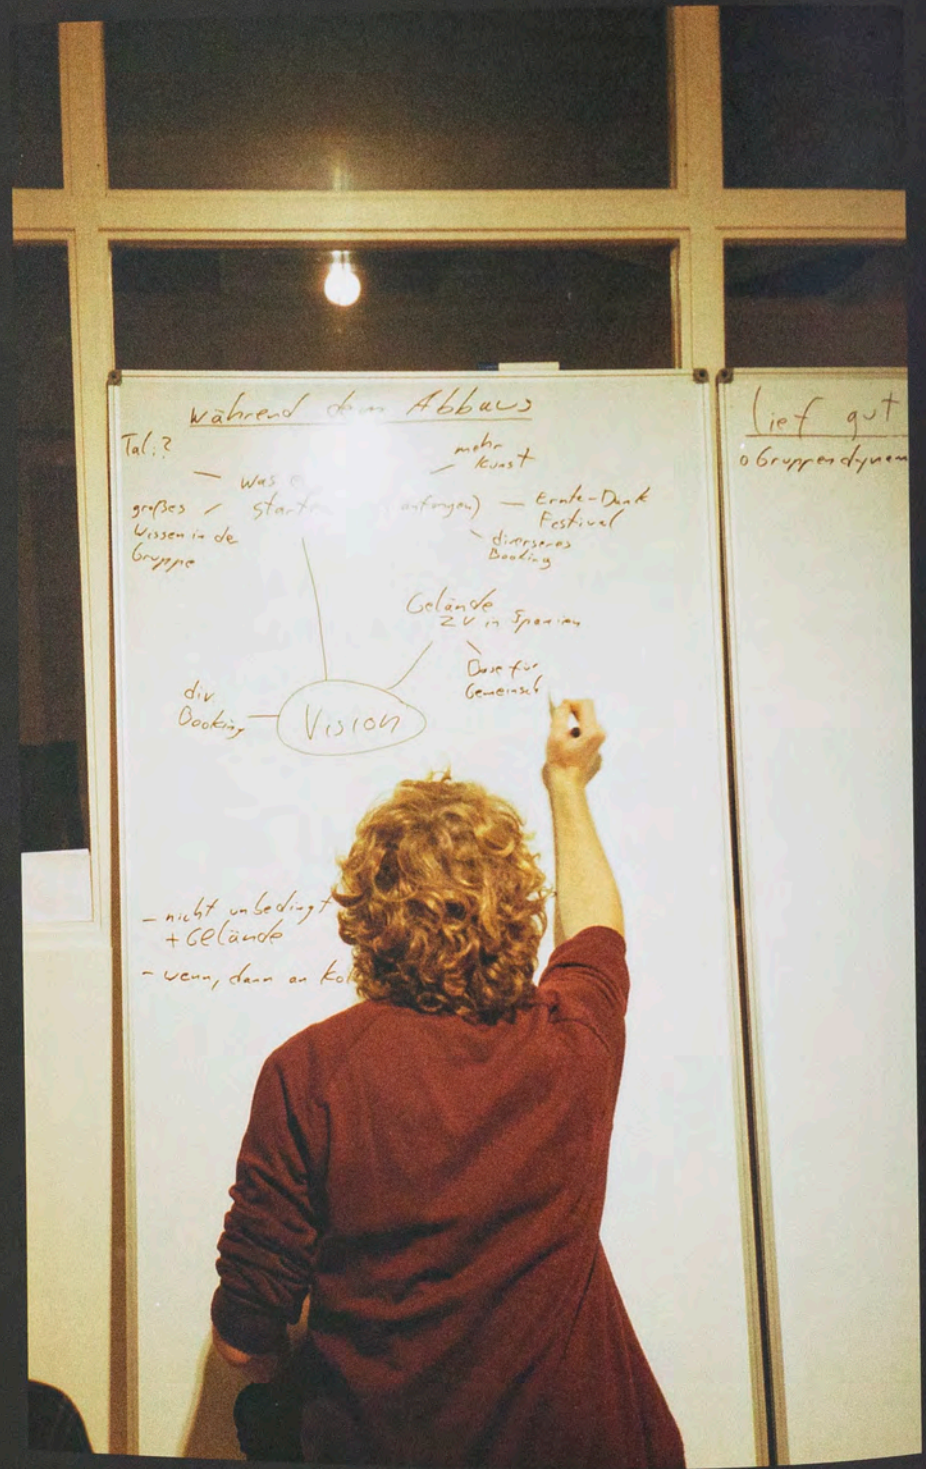 während Abbaus
Tal:?
was
großes
Wissen in der
Gruppe
mehr
Kunst
Ernte-Dank
Festival
diverseres
Booking
Gelände
in Spanien
Base für
Gemeinsch
div.
Booking
Vision
- nicht unbedingt
+ Gelände
- wenn, dann an
lief gut
o Gruppendynam